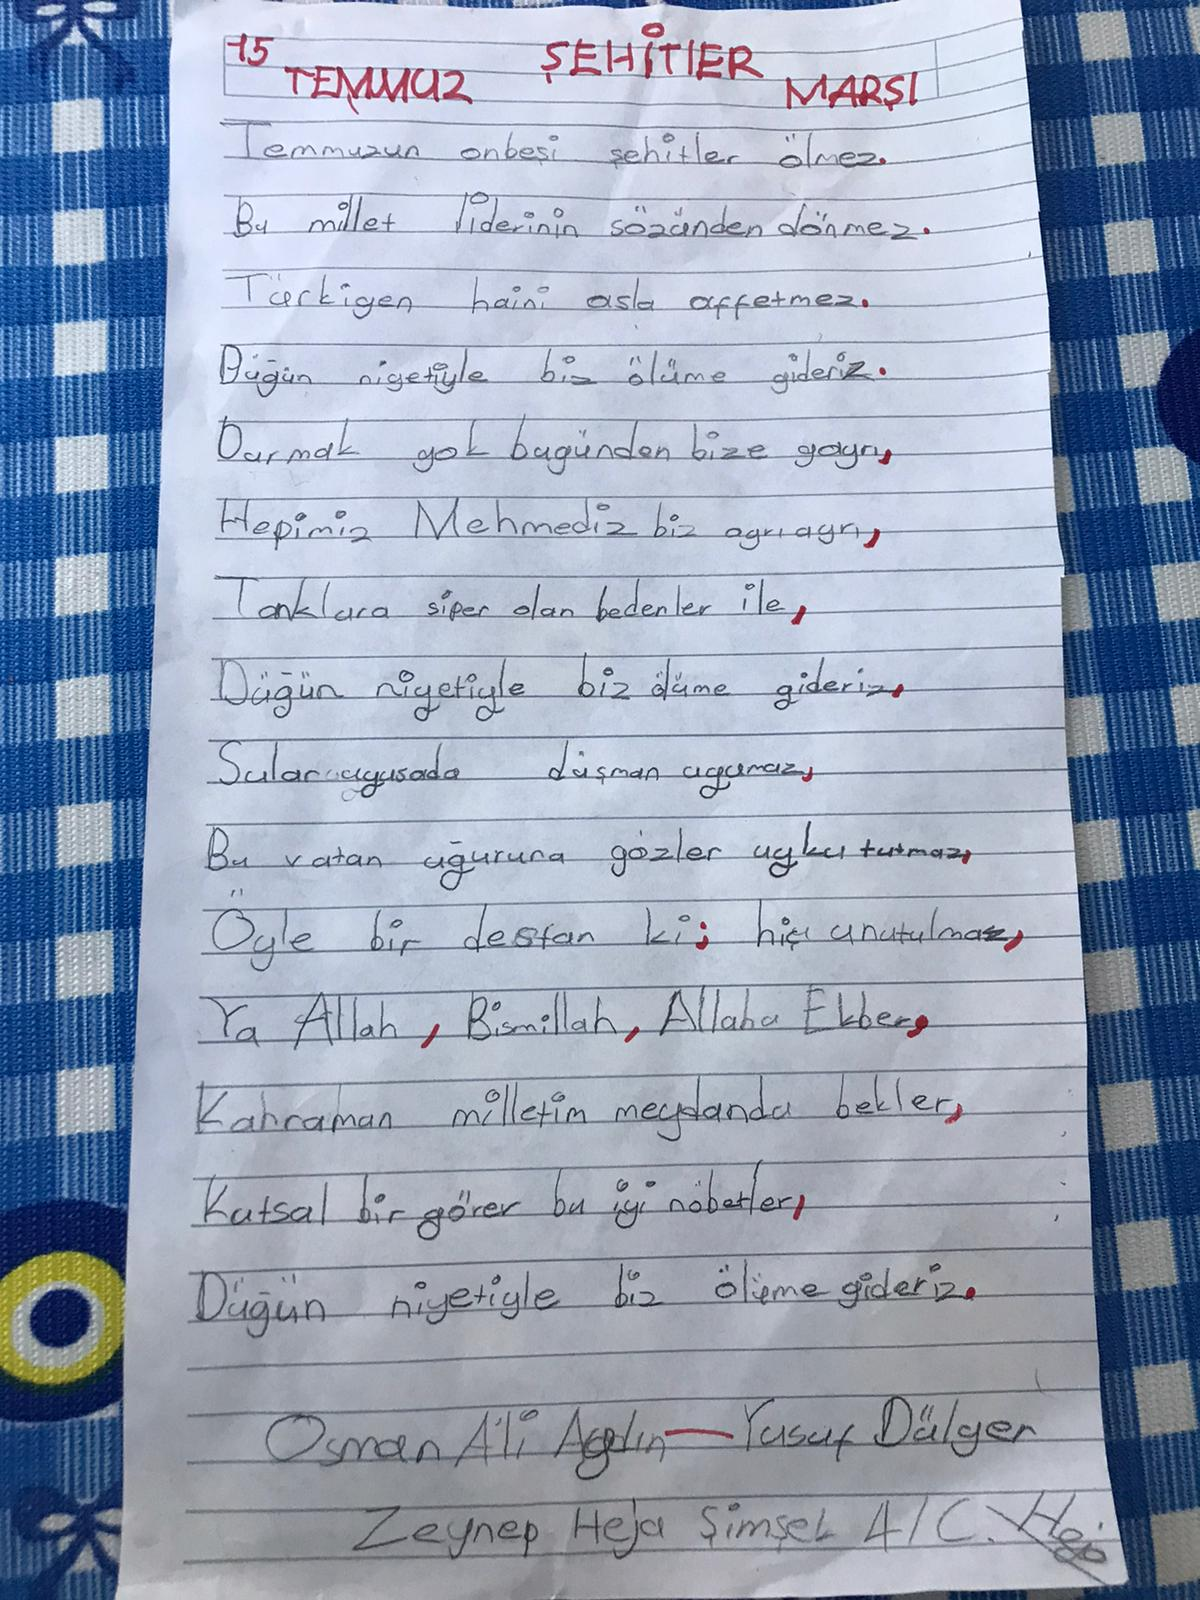 15 TEMMUZ ŞEHİTLER MARŞI
Temmuzun onbeşi şehitler ölmez.
Bu millet liderinin sözünden dönmez.
Türkiyen haini asla affetmez.
Düğün niyetiyle biz ölüme gideriz.
Durmak yok bugünden bize gayrı,
Hepimiz Mehmediz biz ayrı ayrı,
Tanklara siper olan bedenler ile,
Düğün niyetiyle biz ölüme gideriz,
Sular uyusada düşman uyumaz,
Bu vatan uğuruna gözler uyku tutmaz,
Öyle bir destan ki; hiç unutulmaz,
Ya Allah, Bismillah, Allahu Ekber,
Kahraman milletim meydanda bekler,
Kutsal bir görev bu iyi nöbetler,
Düğün niyetiyle biz ölüme gideriz.
Osman Ali Aydın — Yusuf Dülger
Zeynep Heja Şimşek 4/C.